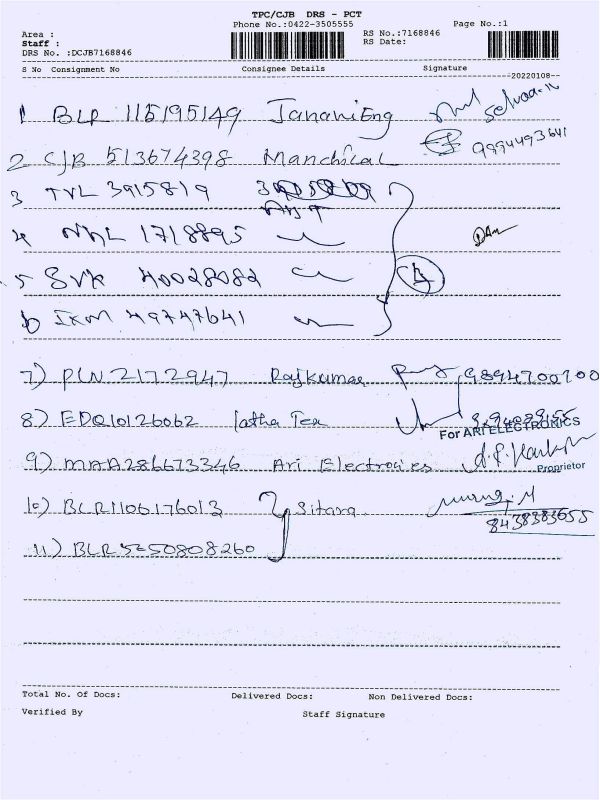 TPC/CJB DRS - PCT
Phone No.:0422-3505555
Page No.:1
Area :
Staff :
DRS No. :DCJB7168846
RS No.:7168846
RS Date:
S No Consignment No Consignee Details Signature
--20220108--
1 BLR 115195149 Janani Eng
9994493641
2 CJB 513674398
3 TVL 3915819
4 1718895
5 SVK 40028082
6 IKM 49747641
4
7) PLN 2172947 Rajkumar 9894700700
8) EDQ10126062 latha Tex
For ARI ELECTRONICS
9) MAA286673346 Ari Electronics
Proprietor
10) BLR1106176013 Sitara
8438383655
11) BLR5250808260
Total No. Of Docs: Delivered Docs: Non Delivered Docs:
Verified By Staff Signature